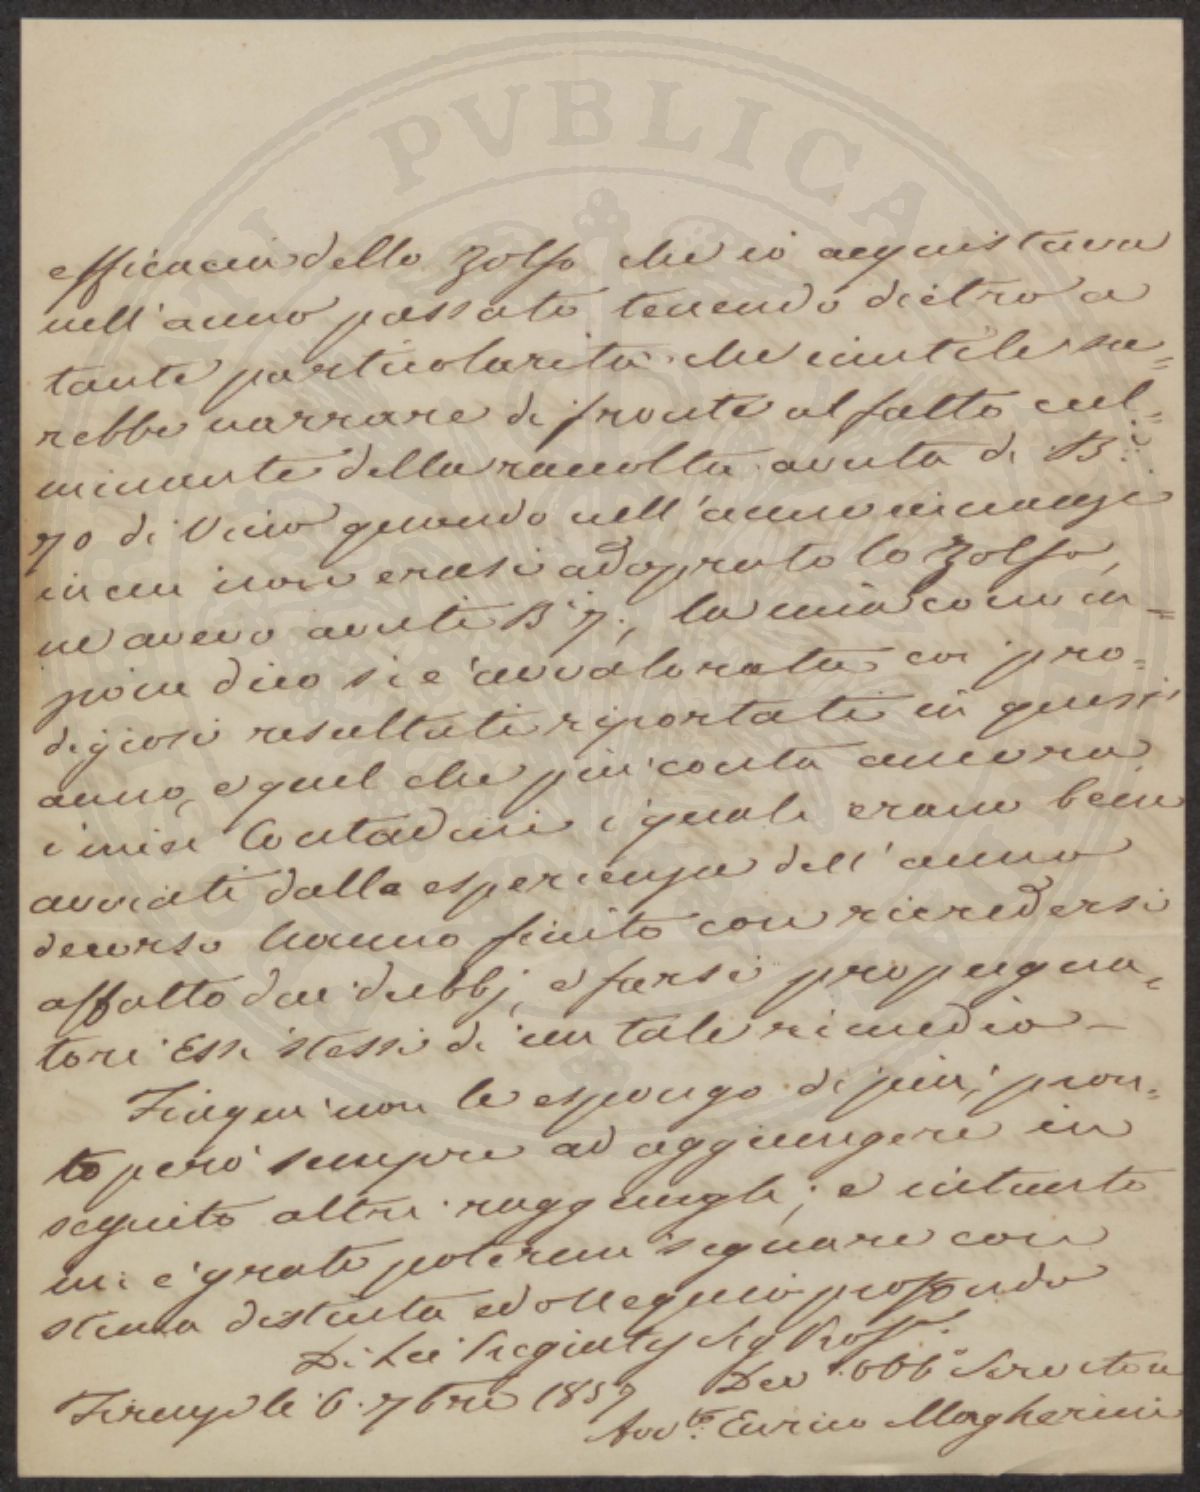 PVBLICA
efficacia dello Zolfo che io acquistava
nell'anno passato tenendo dietro a
tante particolarità che inutile sa=
rebbe narrare di fronte al fatto cul=
minante della raccolta avuta di B.i
70 di Vino quando nell'anno innanzi
in cui non erasi adoprato lo Zolfo,
ne avevo avuti B.i 7.; la mia convin=
zione dico si è avvalorata coi pro=
digiosi resultati riportati in quest'
anno, e quel che più conta ancora
i miei Contadini i quali erano bene
avviati dalla esperienza dell'anno
decorso hanno finito con ricredersi
affatto dai dubbj, e farsi propugna=
tori Essi stessi di un tale rimedio –
Finqui non le espongo di più, pron=
to però sempre ad aggiungere in
seguito altri ragguagli; e intanto
mi è grato potermi segnare con
stima distinta ed ossequio profondo
Di Lei Pregiat. Sig Prof.
Dev. Obb.o Servitore
Firenze li 6. 7bre 1857
Avv.to Enrico Magherini